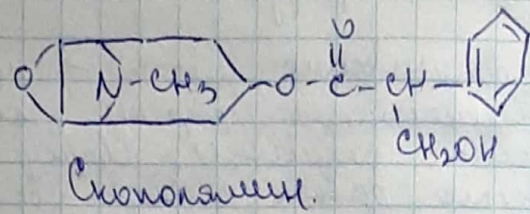 O
O N-CH3 -O-C-CH-
CH2OH
Скополамин.